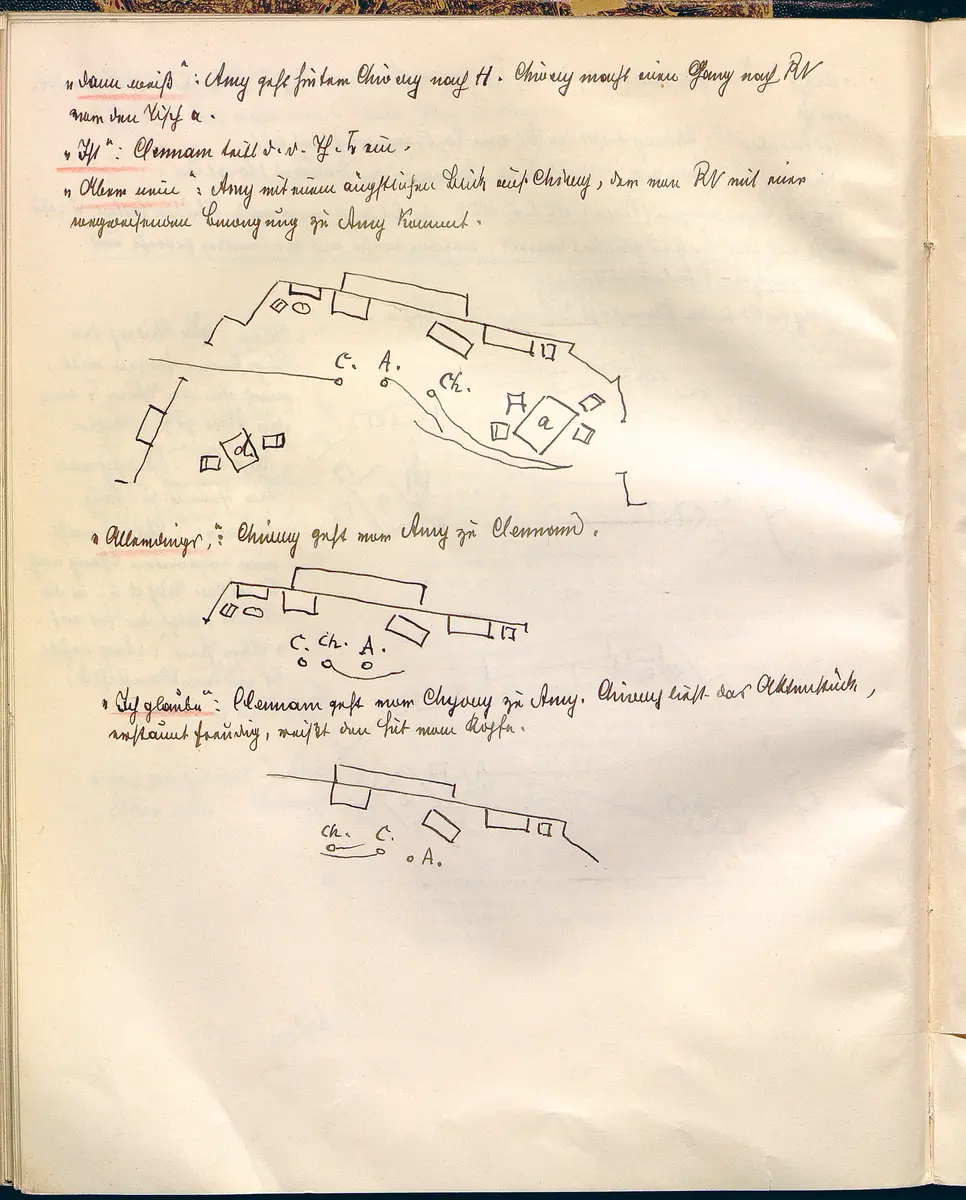 „Dann weiß“: Amy geht hinterm Chivery nach H. Chivery macht einen Gang nach RV
vor den Tisch a.
„Ist“: Clennam tritt d. d. Th. ein.
„Aber nein“: Amy mit einem ängstlichen Blick auf Chivery, der von RV mit einer
Bewegung zu Amy kommt.
C. A. Ch.
a
d
„Allerdings,“: Chivery geht vor Amy zu Clennam.
C. Ch. A.
„Ich glaube“: Clennam geht vor Chyvery zu Amy. Chivery liest das Aktenstück,
erstaunt freudig, reißt den Hut vom Kopfe.
Ch. C.
A.